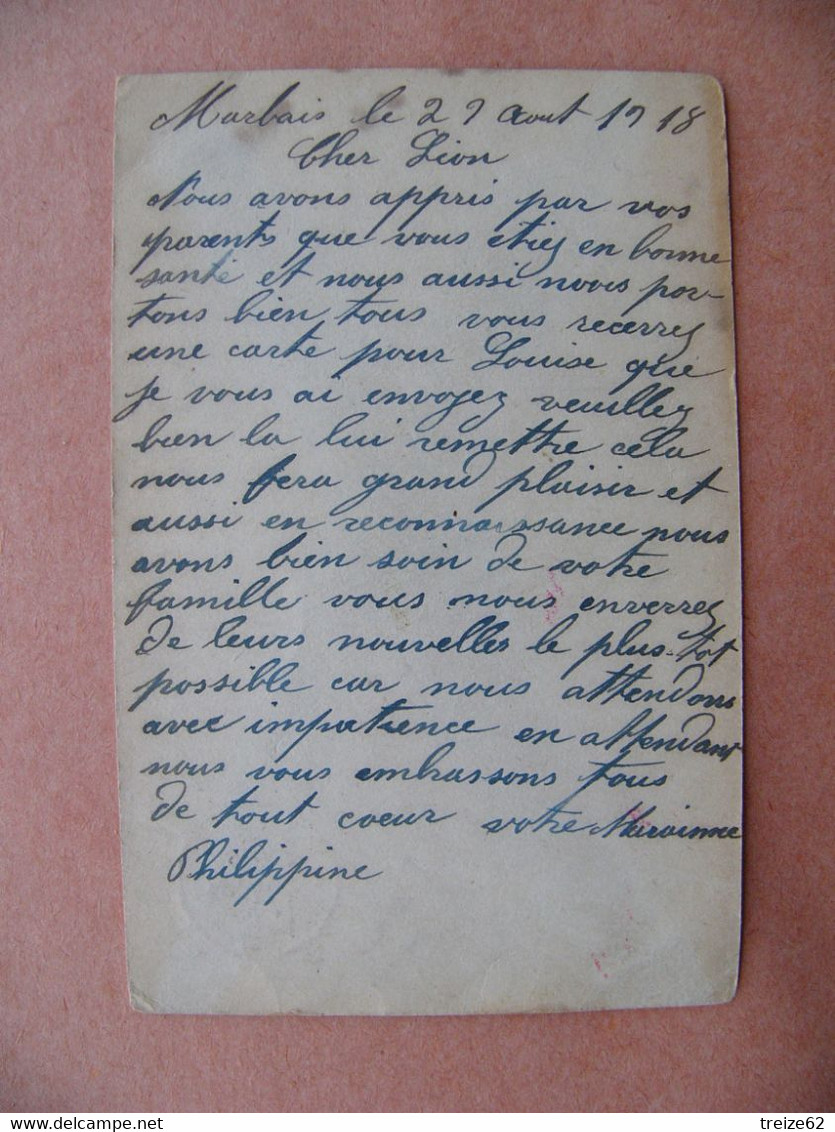 Marbais le 29 Aout 1918
Cher Lion
Nous avons appris par vos
parents que vous étiez en bonne
santé et nous aussi nous por-
tons bien tous vous recerrez
une carte pour Louise que
je vous ai envoyez veuillez
bien la lui remettre cela
nous fera grand plaisir et
aussi en reconnaissance nous
avons bien soin de votre
famille vous nous enverrez
de leurs nouvelles le plus-tot
possible car nous attendons
avec impatience en attendant
nous vous embrassons tous
de tout coeur votre
Philippine
delcampe.net
treize62